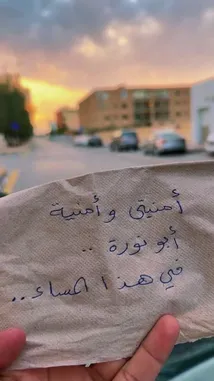 أمنيتي وأمنية
أبو نورة ..
في هذا المساء ..